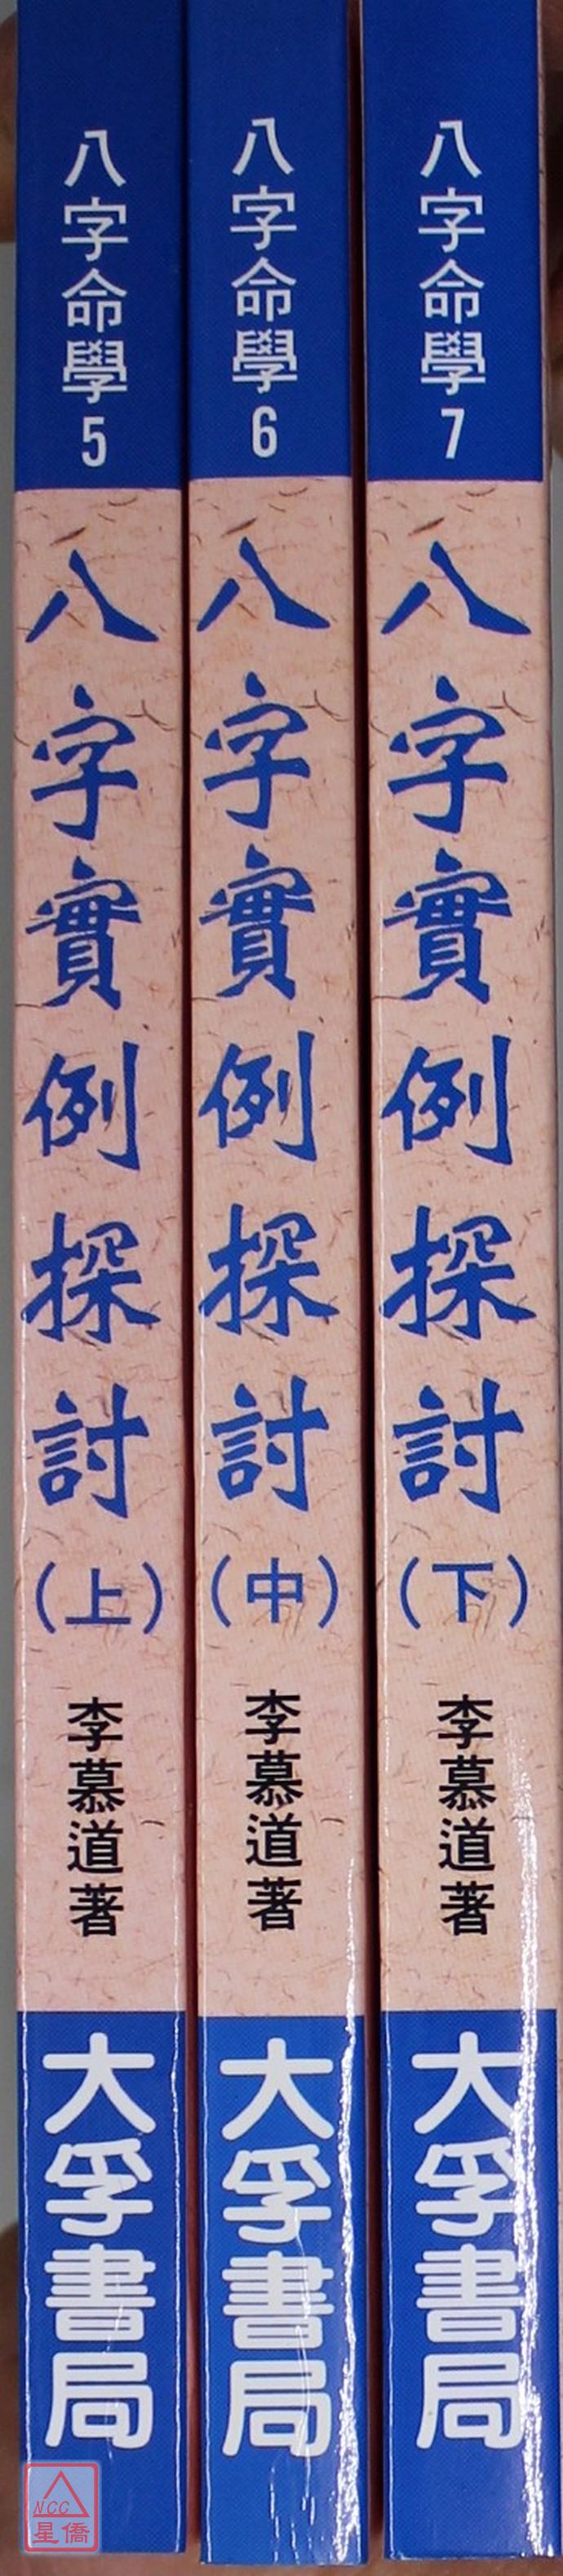 八字命學5
八字實例探討
（上）
李慕道著
大孚書局
八字命學6
八字實例探討
（中）
李慕道著
大孚書局
八字命學7
八字實例探討
（下）
李慕道著
大孚書局
NCC
星僑